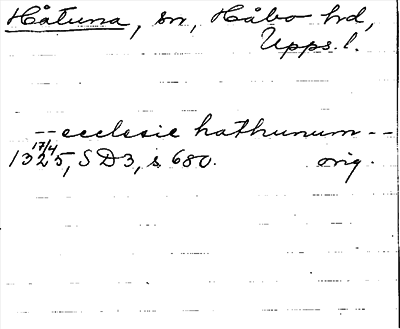 Håtuna, sn, Håbo hd,
Upps. l.
-- ecclesie hathunum --
17/4
1325, SD3, s 680. orig.